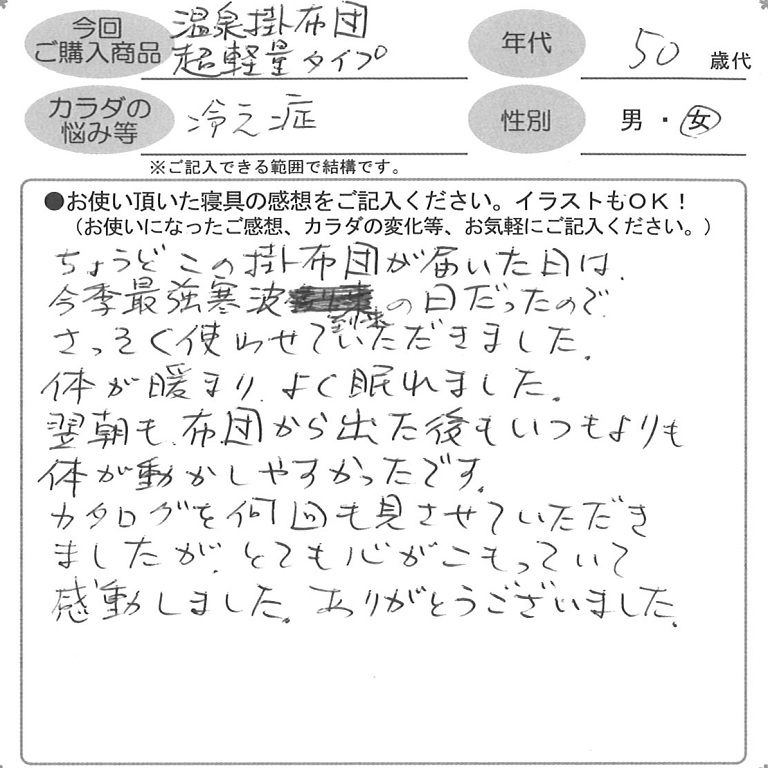 今回
ご購入商品
温泉掛布団
超軽量タイプ
年代
50 歳代
カラダの
悩み等
冷え症
性別
男・女
※ご記入できる範囲で結構です。
●お使い頂いた寝具の感想をご記入ください。イラストもOK！
（お使いになったご感想、カラダの変化等、お気軽にご記入ください。）
ちょうどこの掛布団が届いた日は、
今季最強寒波到来の日だったので
さっそく使わせていただきました。
体が暖まり、よく眠れました。
翌朝も、布団から出た後もいつもよりも
体が動かしやすかったです。
カタログを何回も見させていただき
ましたが、とても心がこもっていて
感動しました。ありがとうございました。